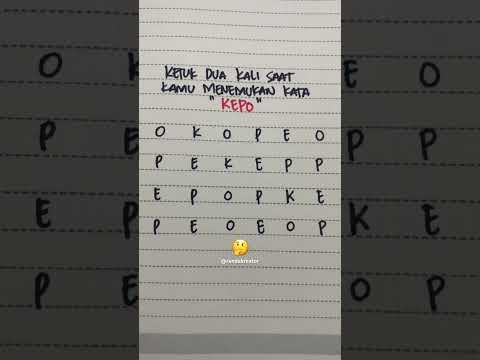 KETUK DUA KALI SAAT
KAMU MENEMUKAN KATA
"KEPO"
O K O P E O
P E K E P P
E P O P K E
P E O E O P